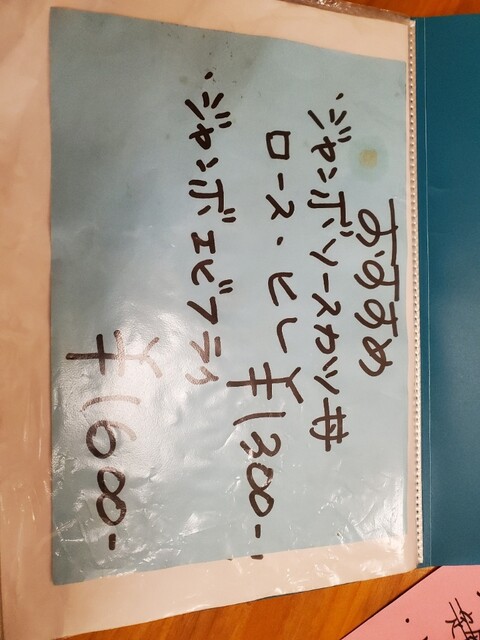 おすすめ
・ジャンボソースカツ丼
ロース・ヒレ ¥1300-
・ジャンボエビフライ
¥1600-